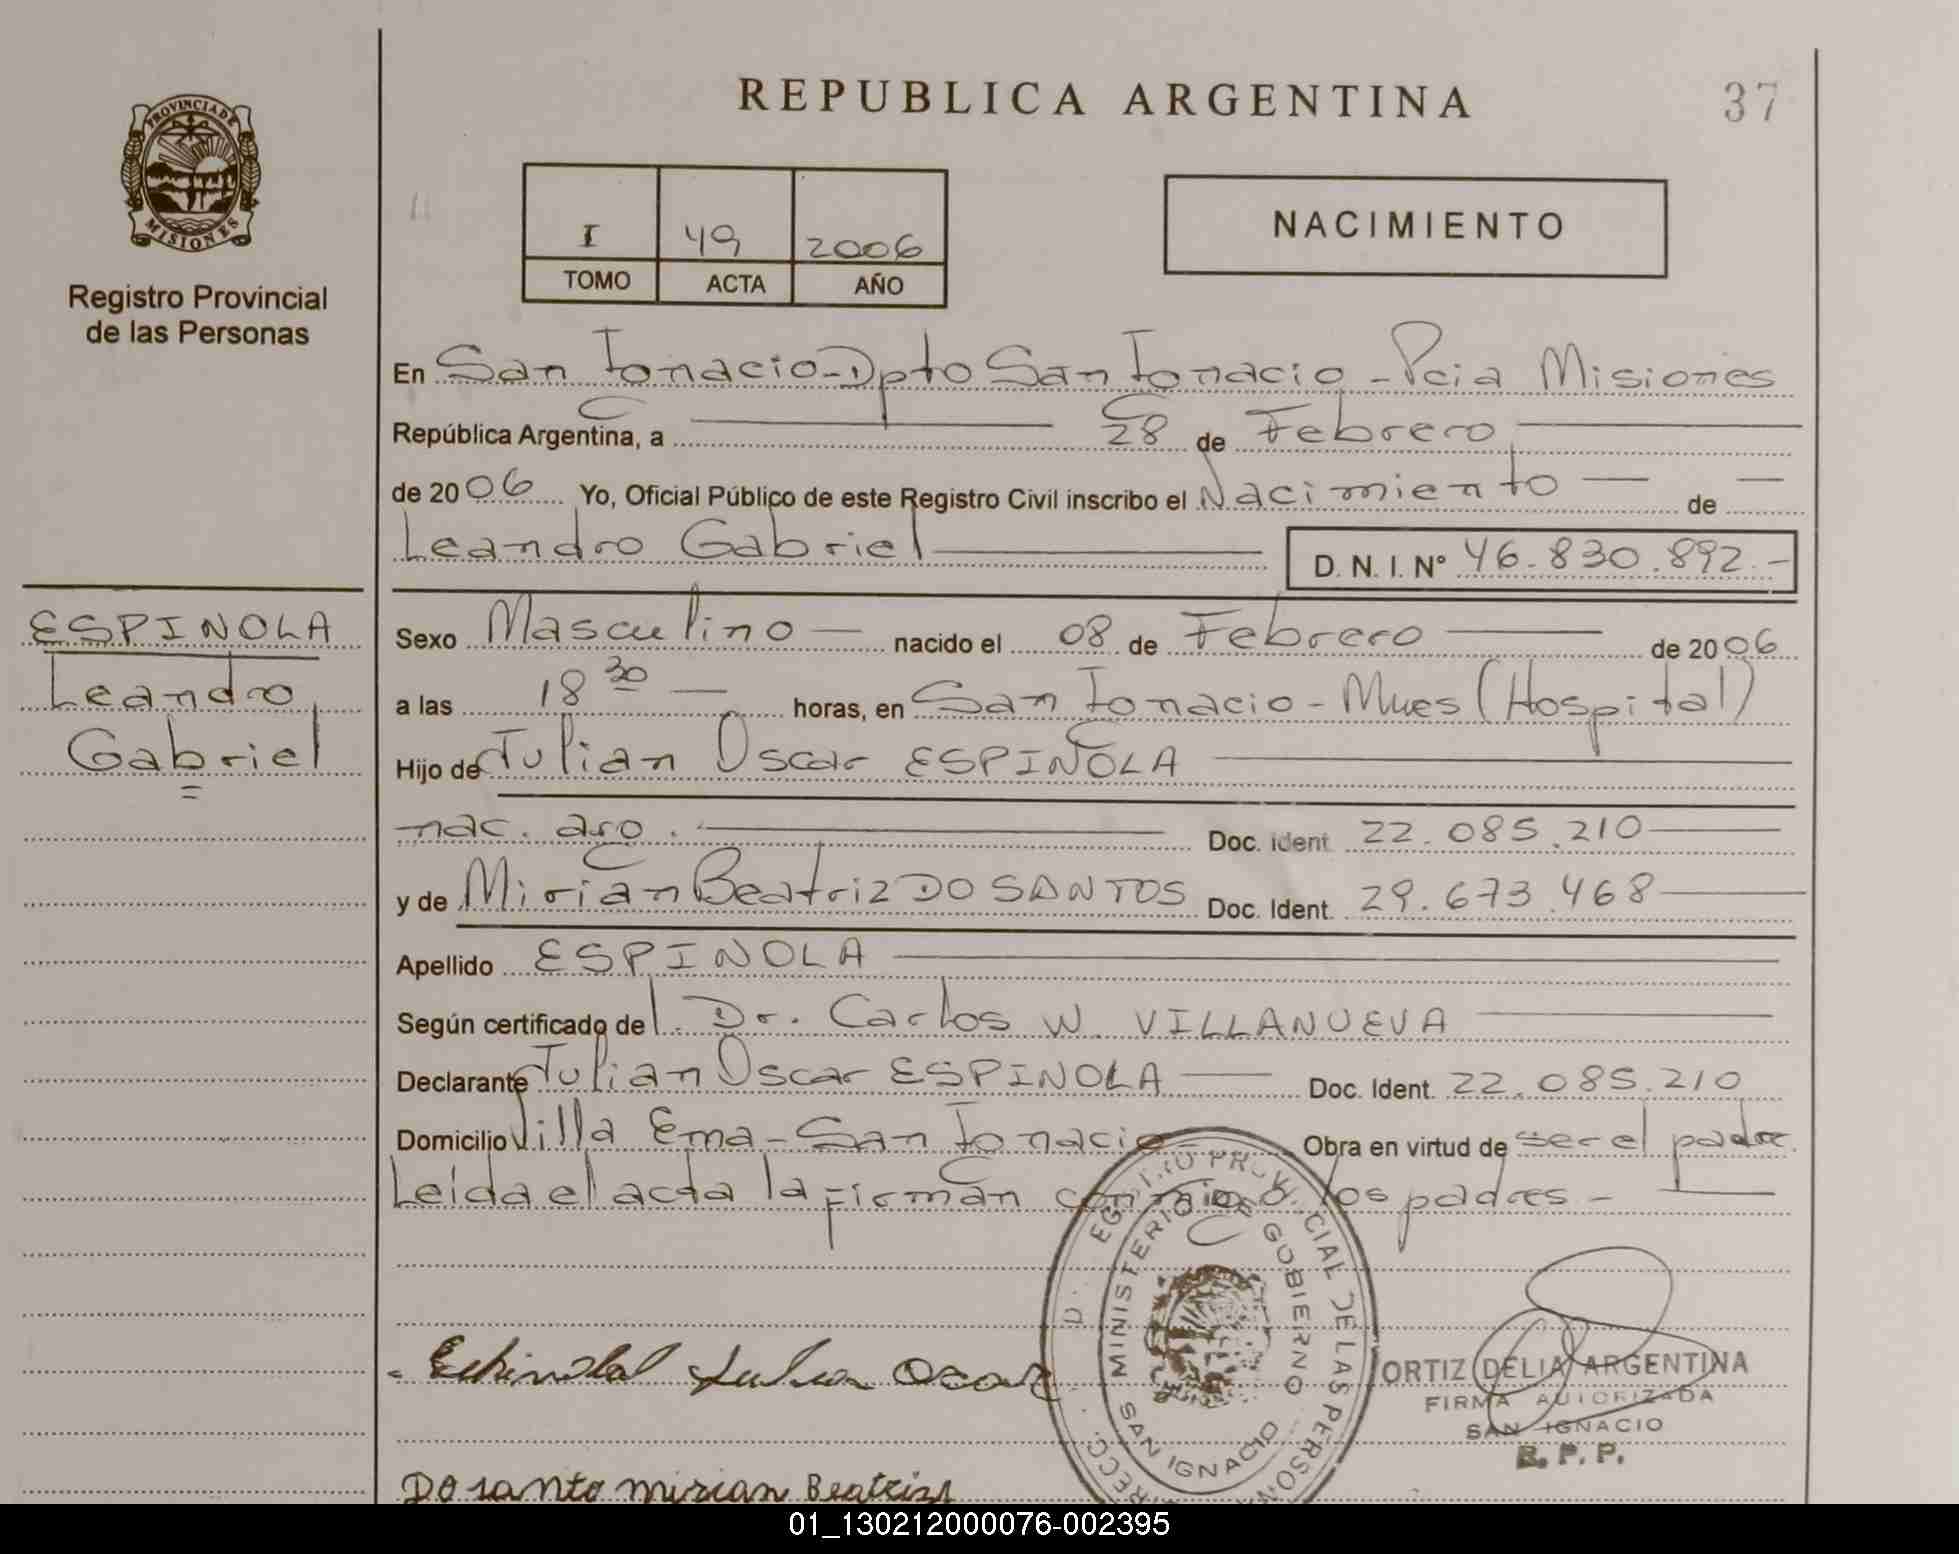 REPUBLICA ARGENTINA
37
PROVINCIA DE MISIONES
Registro Provincial
de las Personas
I 49 2006
TOMO ACTA AÑO
NACIMIENTO
En San Ignacio-Dpto San Ignacio - Pcia Misiones
República Argentina, a 28 de Febrero
de 2006 Yo, Oficial Público de este Registro Civil inscribo el Nacimiento de
Leandro Gabriel D. N. I. Nº 46.830.892.-
ESPINOLA
Leandro
Gabriel
Sexo Masculino nacido el 08 de Febrero de 2006
a las 18 30 horas, en San Ignacio - Mnes (Hospital)
Hijo de Julian Oscar ESPINOLA
nac. arg. Doc. Ident. 22.085.210
y de Mirian Beatriz DO SANTOS Doc. Ident. 29.673.468
Apellido ESPINOLA
Según certificado del Dr. Carlos W. VILLANUEVA
Declarante Julian Oscar ESPINOLA Doc. Ident. 22.085.210
Domicilio Villa Ema - San Ignacio - Obra en virtud de ser el padre
Leida el acta la firman conmigo los padres -
REGISTRO PROVINCIAL DE LAS PERSONAS
MINISTERIO DE GOBIERNO
SAN IGNACIO
ORTIZ DELIA ARGENTINA
FIRMA AUTORIZADA
SAN IGNACIO
R. P. P.
Do santo mirian Beatriz
01_130212000076-002395